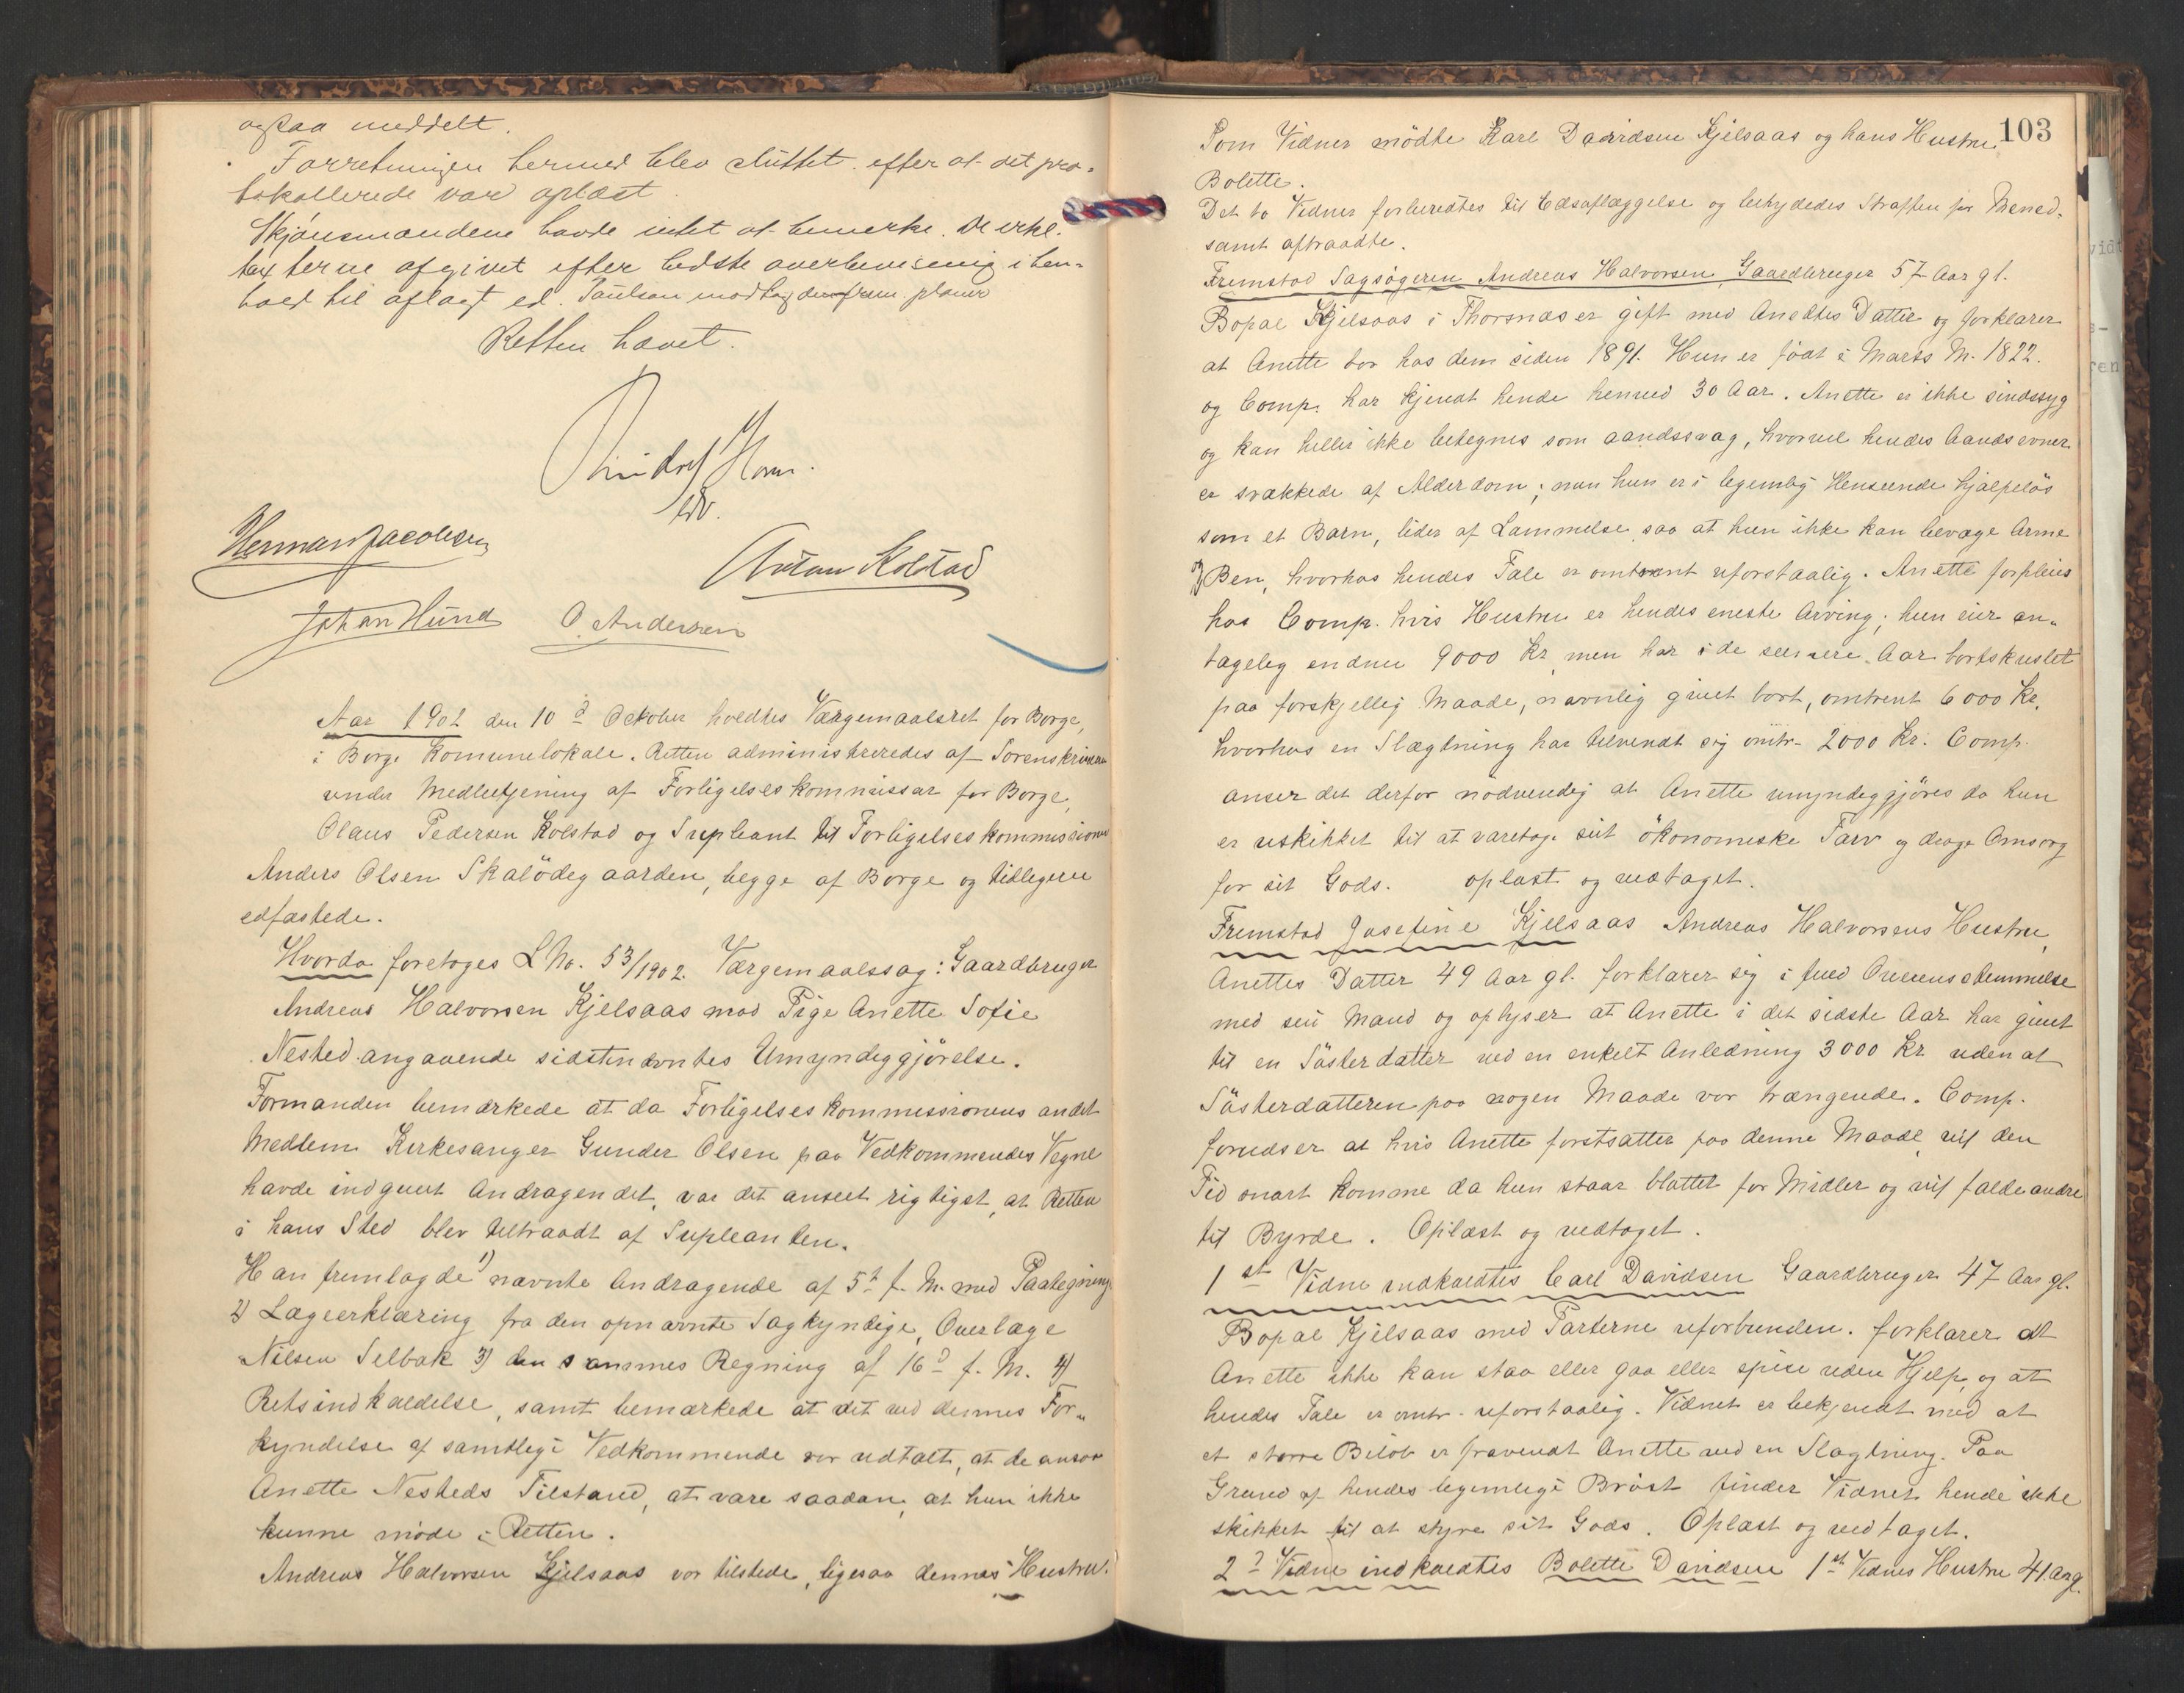 ogsaa meddelt.
Forretningen hermed blev sluttet efter at det pro-
tokollerede var oplæst.
Skjønsmændene havde intet at bemerke. De erkl.
taxterne afgivet efter bedste overbevisning i hen-
hold til aflagt ed. Paulsen modtog
Retten hævet.
Horn.
Herman Jacobsen
Anton Kolstad
Johan Hund O. Andersen
Aar 1902 den 10d Oktober holdtes Værgemaalsret for Borge,
i Borge Komunelokale. Retten administreredes af Sorenskriveren
under Medbetjening af Forligelseskommissær for Borge,
Olaus Pedersen Kolstad og Supleant til Forligelseskommissionen
Anders Olsen Skalödegaarden, begge af Borge og tidligere
edfæstede.
Hvorda foretoges L No. 53/1902. Værgemaalssag: Gaardbruger
Andreas Halvorsen Kjelsaas mod Pige Anette Sofie
Nested angaaende sidstnævntes Umyndiggjørelse.
Formanden bemærkede at da Forligelseskommissionens andet
Medlem Kirkesanger Gunder Olsen paa Vedkommendes Vegne
havde indgivet Andragendet, var det anseet rigtigst, at Retten
i hans Sted blev tiltraadt af Supleanten.
Han fremlagde 1) nævnte Andragende af 5te f. M. med Paategning
2) Lægeerklæring fra den opnævnte Sagkyndige, Overlæge
Nilsen Selbak 3) den sammes Regning af 16d f. M. 4)
Retsindkaldelse, samt bemærkede at det ved dennes For-
kyndelse af samtlige Vedkommende var udtalt, at de ansaa
Anette Nesteds Tilstand, at være saadan, at hun ikke
kunne møde i Retten.
Andreas Halvorsen Kjelsaas var tilstede, ligesaa dennes Hustru.
103
Som Vidner mödte Karl Davidsen Kjelsaas og hans Hustru
Bolette.
Det to Vidner forberedtes til Edsaflæggelse og betydedes Straffen for Mened.
samt aftraadte.
Fremstod Sagsøgeren Andreas Halvorsen Gaardbruger 57 Aar gl.
Bopæl Kjelsaas i Thorsnæs er gift med Anettes Datter og forklarer
at Anette bor hos dem siden 1891. Hun er født i Marts M. 1822.
og Comp. har kjendt hende henved 30 Aar. Anette er ikke sindssyg
og kan heller ikke betegnes som aandssvag, hvorvel hendes Aandsevner
er svækkede af Alderdom; men hun er i legemlig Henseende hjælpeløs
som et Barn, lider af Lammelse saa at hun ikke kan bevæge Arme
og Ben, hvorhos hendes Tale er omtrent uforstaalig. Anette forpleies
hos Comp. hvis Hustru er hendes eneste Arving; hun eier an-
tagelig endnu 9000 Kr, men har i de senere Aar bortskuslet
paa forskjellig Maade, navnlig givet bort, omtrent 6000 Kr.
hvorhos en Slægtning har tilvendt sig omtr. 2000 Kr. Comp.
anser det derfor nødvendig at Anette umyndiggjöres da hun
er uskikket til at varetage sit ökonomiske Tarv og drage Omsorg
for sit Gods. oplæst og vedtaget.
Fremstod Josefine Kjelsaas Andreas Halvorsens Hustru,
Anettes Datter 49 Aar gl. forklarer sig i fuld Overensstemmelse
med sin Mand og oplyser at Anette i det sidste Aar har givet
til en Søsterdatter ved en enkelt Anledning 3000 Kr uden at
Søsterdatteren paa nogen Maade var trængende. Comp.
forudser at hvis Anette forstsætter paa denne Maade vil den
Tid snart komme da hun staar blottet for Midler og vil falde andre
til Byrde. Oplæst og vedtaget.
1st Vidne indkaldtes Carl Davidsen Gaardbruger 47 Aar gl.
Bopæl Kjelsaas med Parterne uforbunden. forklarer at
Anette ikke kan staa eller gaa eller spise uden Hjelp, og at
hendes Tale er omtr. uforstaalig. Vidnet er bekjendt med at
et større Beløb er fravendt Anette ved en Slægtning. Paa
Grund af hendes legemlige Bröst finder Vidnet hende ikke
skikket til at styre sit Gods. Oplæst og vedtaget.
2d Vidne indkaldtes Bolette Davidsen 1st Vidnes Hustru 41 Aar gl.